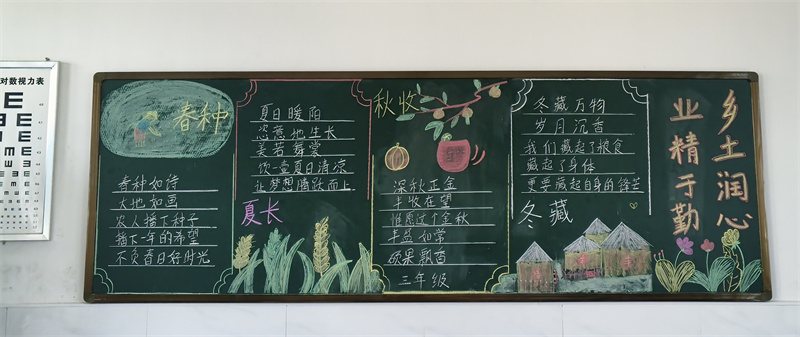 对数视力表
春种
春种如诗
大地如画
农人播下种子
播下一年的希望
不负春日好时光
夏日暖阳
恣意地生长
美若舞裳
饮一壶夏日清凉
让梦想腾跃而上
夏长
秋收
深秋正金
丰收在望
惟愿这个金秋
丰盈如常
硕果飘香
三年级
冬藏万物
岁月沉香
我们藏起了粮食
藏起了身体
更要藏起自身的锋芒
冬藏
乡土润心
业精于勤